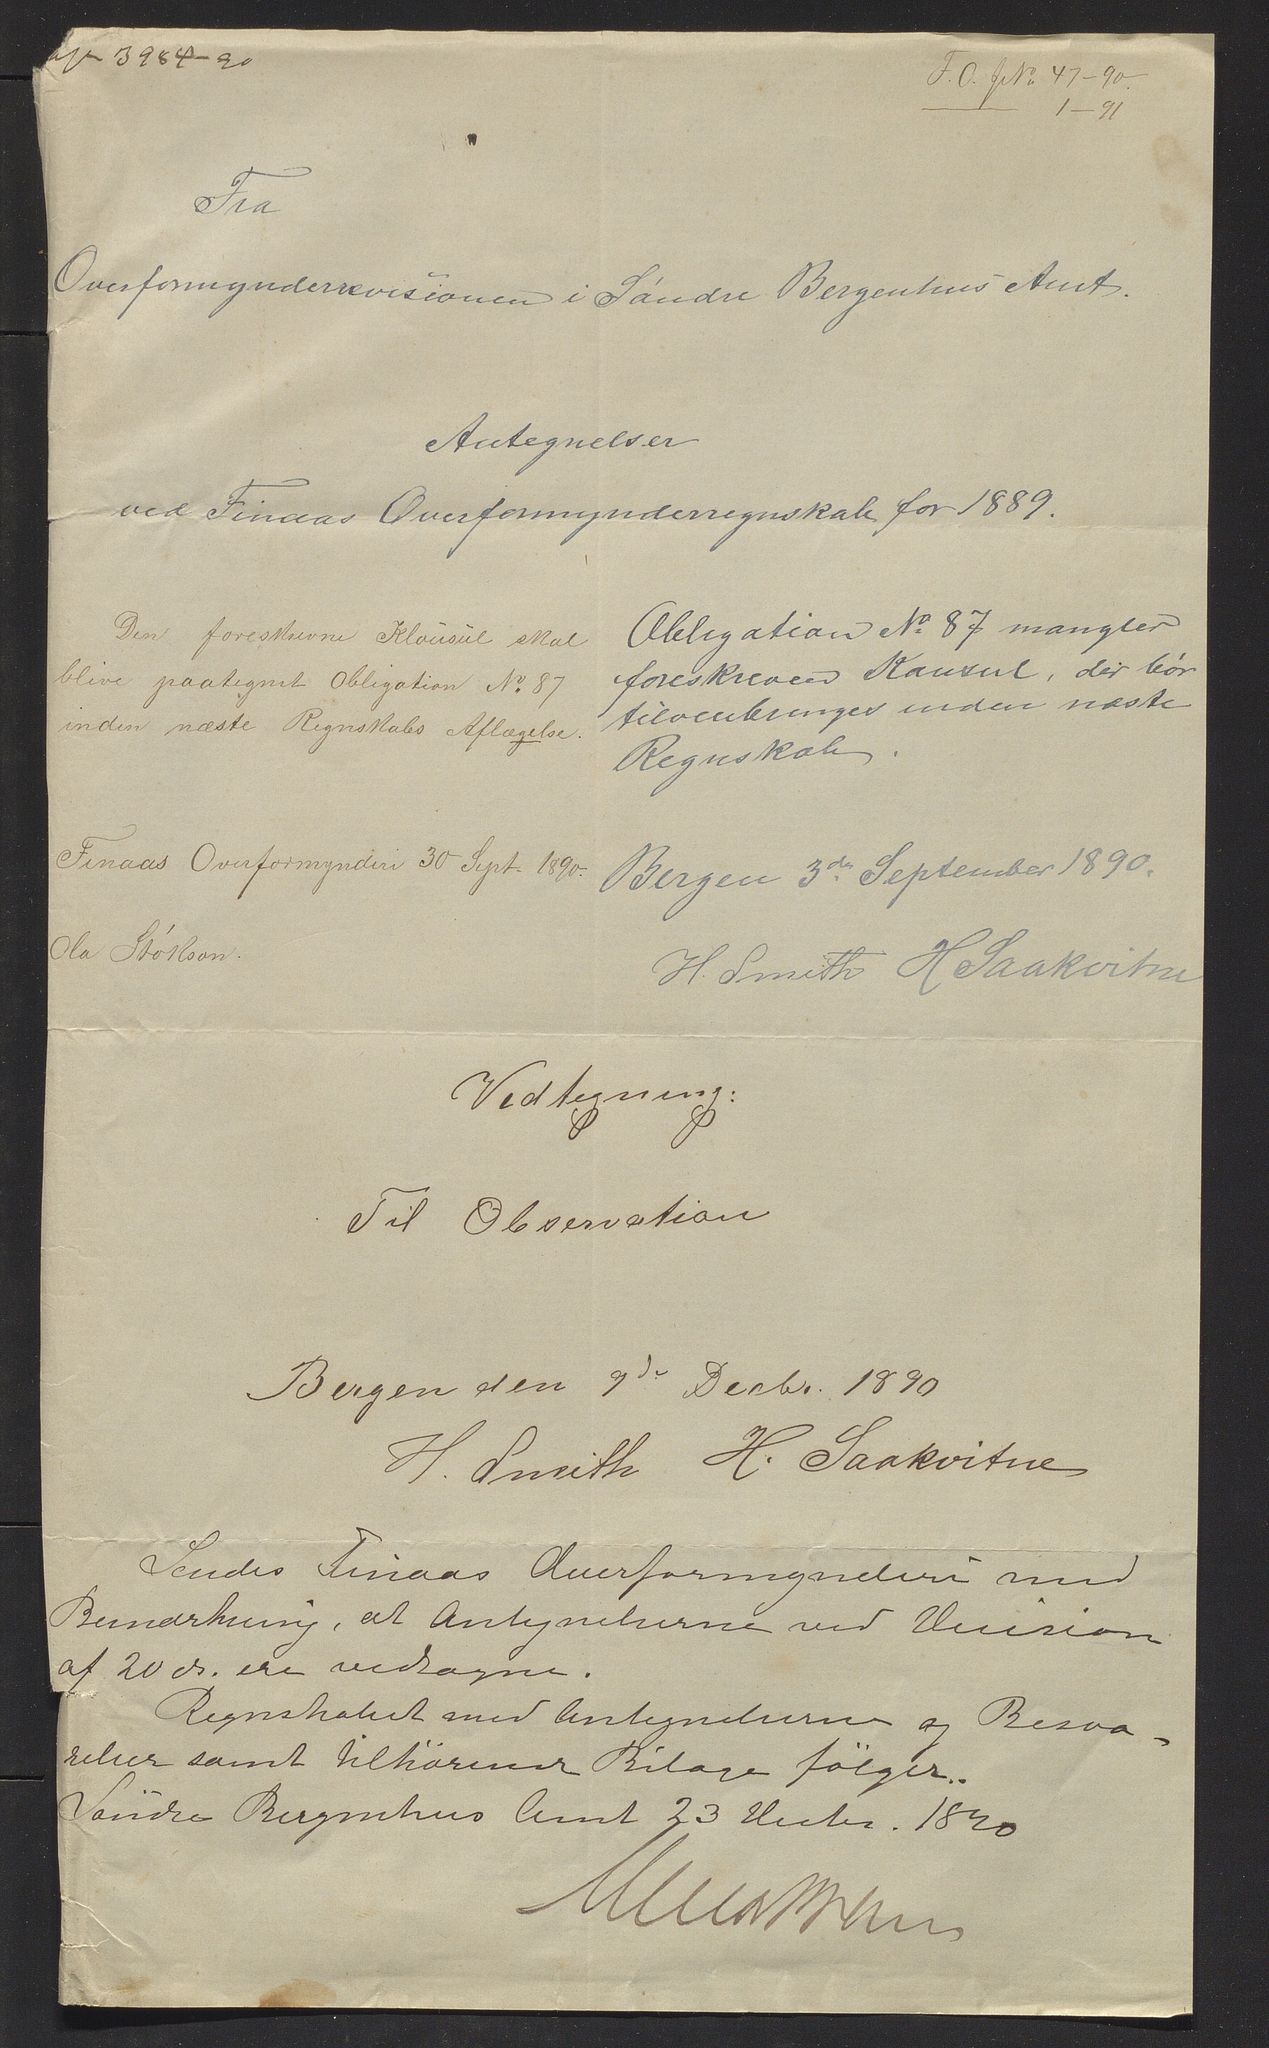 3984-90
F.O. jNo. 47-90.
1-91
Fra
Overformynderrevisionen i Söndre Bergenhus Amt.
Antegnelser
ved Finaas Overformynderregnskab for 1889.
Den foreskrevne Klausul skal
blive paategnet Obligation No. 87
inden næste Regnskabs Aflægelse.
Finaas Overformynderi 30 Sept. 1890.
Ola
Obligation No. 87 mangler
foreskreven Kausul, der bör
tilveiebringes inden næste
Regnskab.
Bergen 3die September 1890.
H. Smith H Saakvitne
Vedtegning:
Til Observation
Bergen den 9de Decbr. 1890
H. Smith H. Saakvitne
Sendes Finaas Overformynderi med
Bemærkning, at Antegnelserne ved Decision
af 20 ds. ere vedtagne.
Regnskabet med Antegnelserne og Besva-
relser samt tilhörende Bilage fölger.
Söndre Bergenhus Amt 23 Decbr. 1890